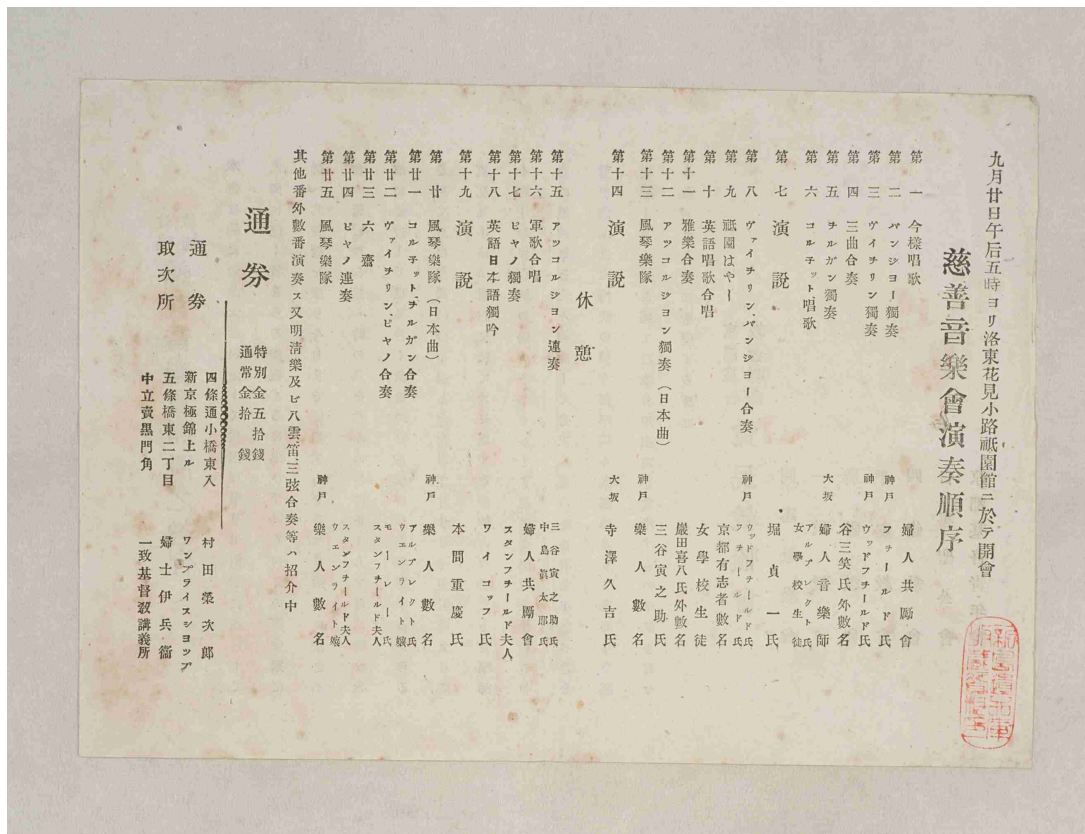 九月廿日午后五時ヨリ洛東花見小路祗園館ニ於テ開會
慈善音樂會演奏順序
第一 今樣唱歌 婦人共勵會
第二 バンジョー獨奏 神戸 フォールド氏
第三 ヴイヲリン獨奏 神戸 ウッドフヲールド氏
第四 三曲合奏 谷三笑氏外數名
第五 ヲルガン獨奏 大坂 婦人音樂師
第六 コルチット、唱歌 アルブレクト氏 女學校生徒
第七 演說 堀貞一氏
第八 ヴァイヲリン、バンジョー合奏 神戸 ウッドフヲールド氏 フヲールド氏
第九 祗園はやし 京都有志者數名
第十 英語唱歌合唱 女學校生徒
第十一 雅樂合奏 嚴田喜八氏外數名
第十二 アッコルジョン獨奏(日本曲) 三谷寅之助氏
第十三 風琴樂隊 神戸 樂人數名
第十四 演說 大坂 寺澤久吉氏
休憩
第十五 アッコルジョン連奏 三谷寅之助氏 中島眞太郎氏
第十六 軍歌合唱 婦人共勵會
第十七 ピヤノ獨奏 スタンフヲールド夫人
第十八 英語日本語獨吟 ワイコッフ氏
第十九 演說 本間重慶氏
第廿 風琴樂隊(日本曲) 神戸 樂人數名
第廿一 コルチット、ヲルガン合奏 アルブレクト氏 ウェンライト孃
第廿二 ヴァイヲリン、ピヤノ合奏 モーレー氏 スタンフヲールド夫人
第廿三 六齋
第廿四 ピヤノ連奏 スタンフヲールド夫人 ウェンライト孃
第廿五 風琴樂隊 神戸 樂人數名
其他番外數番演奏ス又明清樂及ビ八雲、笛、三弦合奏等ハ招介中
通券
特別金五拾錢
通常金拾錢
通券
取次所
四條通小橋東入 村田榮次郎
新京極錦上ル ワンプライスショップ
五條橋東二丁目 婦士伊兵衞
中立賣黑門角 一致基督敎講義所